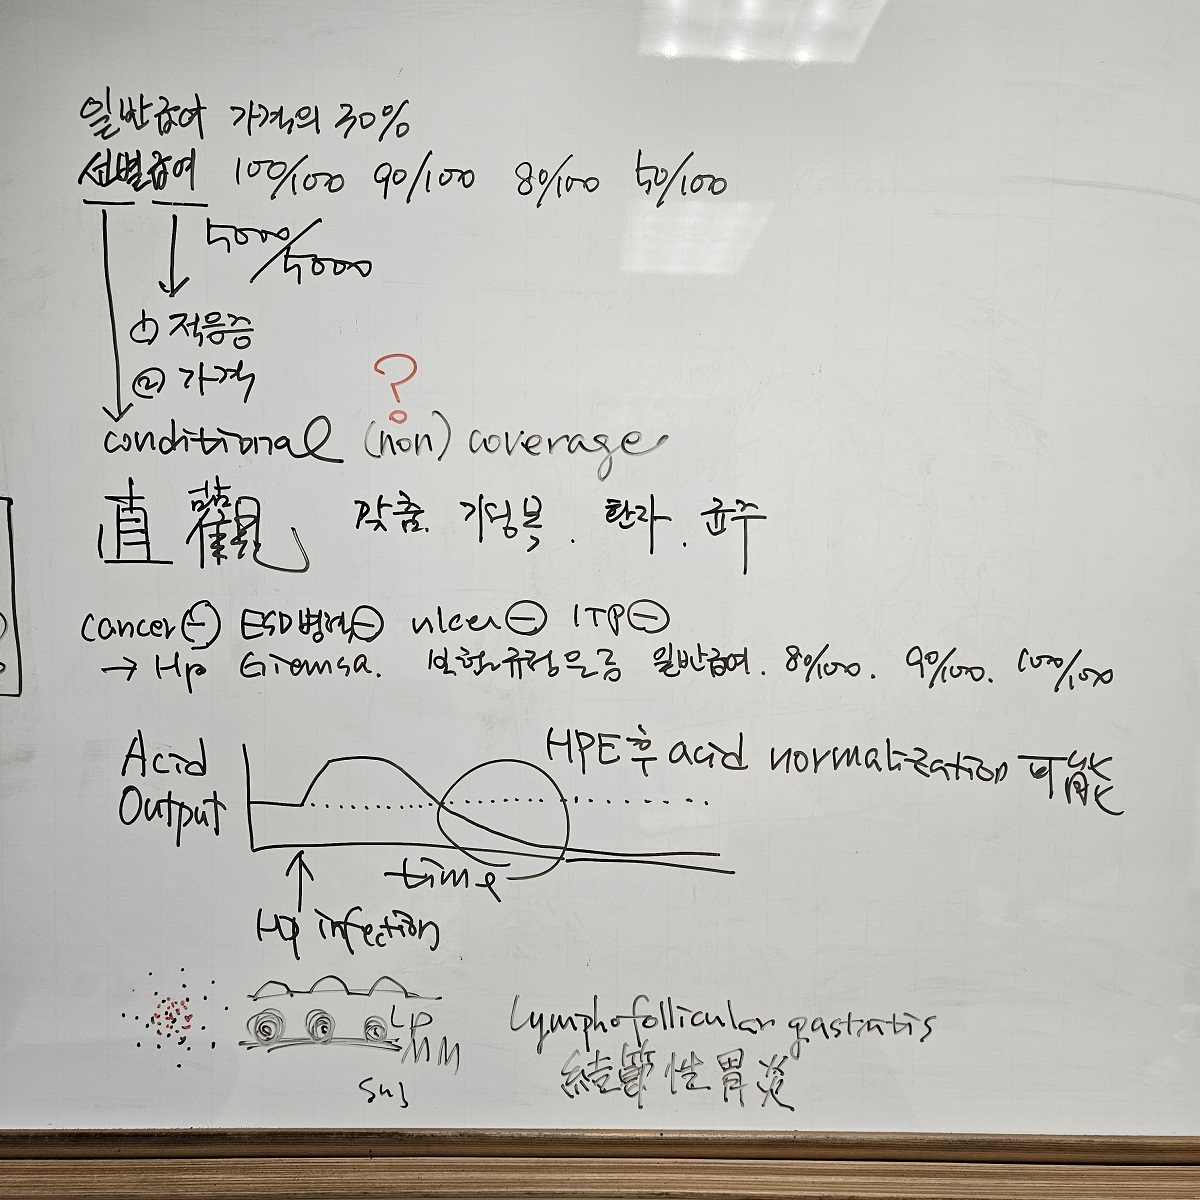 일반급여 가격의 30%
선별급여 100/100 90/100 80/100 50/100
5000/5000
① 적응증
② 가격
?
conditional (non) coverage
直觀 맞춤. 기명복. 환자. 균주
cancer⊖ ESD병력⊖ ulcer⊖ ITP⊖
→ Hp Giemsa. 보험규정은 일반급여. 80/100. 90/100. 100/100
HPE후 acid normalization 可能
Acid
Output
time
HP infection
LP
MM
Lymphofollicular gastritis
結節性胃炎